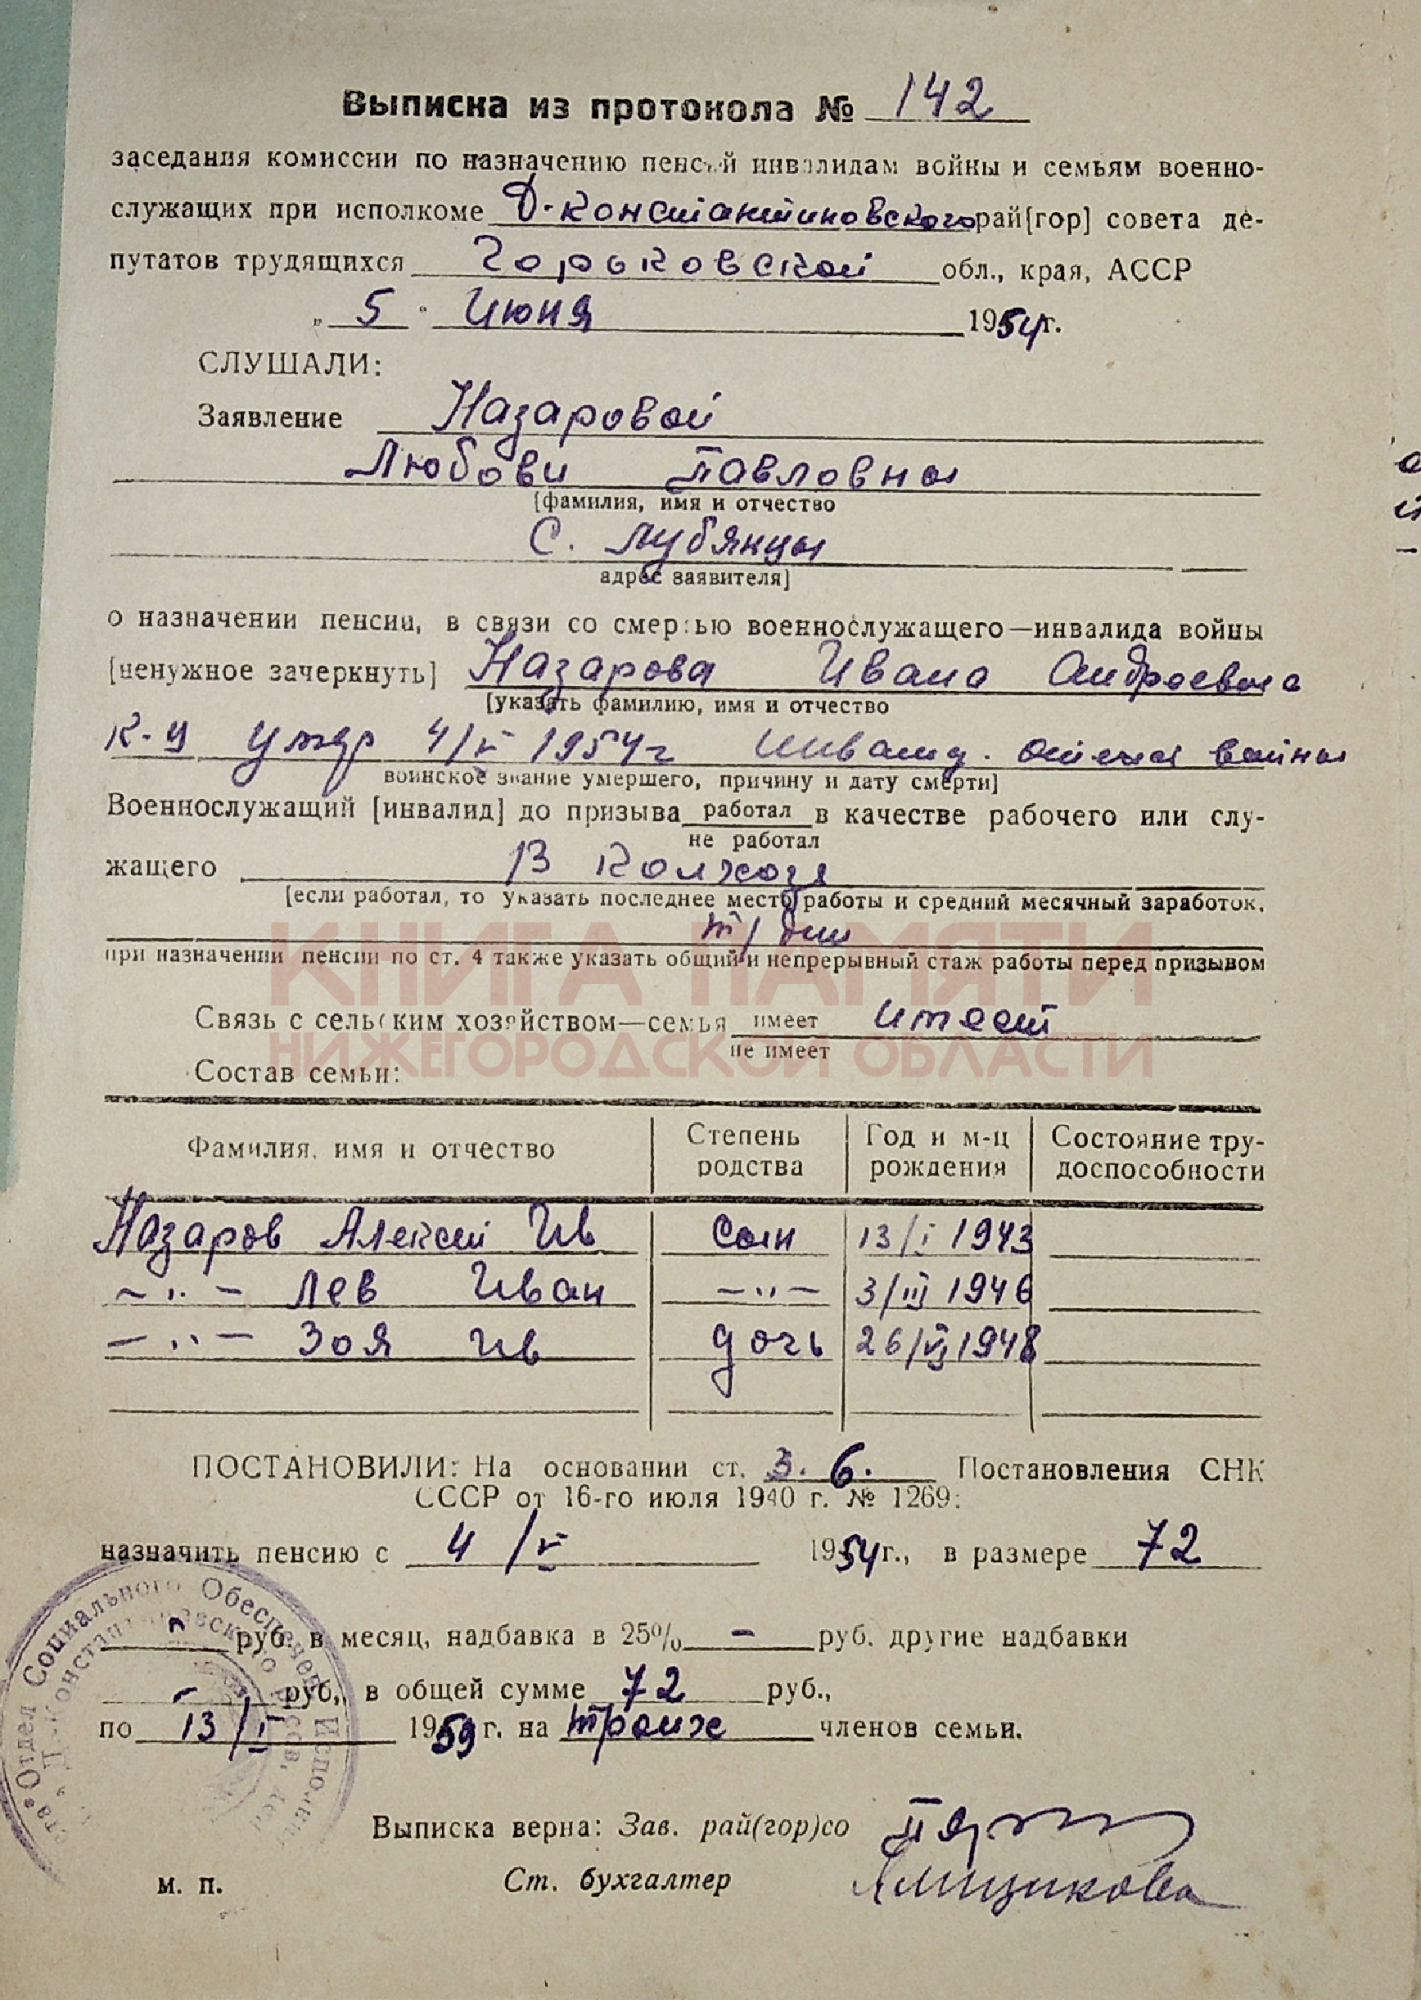 Выписка из протокола № 142
заседания комиссии по назначению пенсий инвалидам войны и семьям военно-
служащих при исполкоме Д-Константиновского рай[гор] совета де-
путатов трудящихся Горьковской обл., края, АССР
„ 5 “ Июня 1954г.
СЛУШАЛИ:
Заявление Назаровой
Любови Павловны
[фамилия, имя и отчество
с. Лубянцы
адрес заявителя]
о назначении пенсии, в связи со смертью военнослужащего—инвалида войны
[ненужное зачеркнуть] Назарова Ивана Андреевича
[указать фамилию, имя и отчество
К-ц умер 4/V 1954г инвалид. отеч войны
воинское звание умершего, причину и дату смерти]
Военнослужащий [инвалид] до призыва работал в качестве рабочего или слу-
не работал
жащего В колхозе
[если работал, то указать последнее место работы и средний месячный заработок,
тр/дни
при назначении пенсии по ст. 4 также указать общий и непрерывный стаж работы перед призывом
КНИГА ПАМЯТИ
НИЖЕГОРОДСКОЙ ОБЛАСТИ
Связь с сельским хозяйством—семья имеет имеет
не имеет
Состав семьи:
Фамилия, имя и отчество Степень родства Год и м-ц рождения Состояние тру-доспособности
Назаров Алексей Ив сын 13/I 1943
—"— Лев Иван —"— 3/III 1946
—"— Зоя Ив дочь 26/VI 1948
ПОСТАНОВИЛИ: На основании ст. 3. 6. Постановления СНК
СССР от 16-го июля 1940 г. № 1269:
назначить пенсию с 4/V 1954г., в размере 72
руб. в месяц, надбавка в 25% — руб. другие надбавки
— руб., в общей сумме 72 руб.,
по 13/I 1959г. на троих членов семьи.
Отдел Социального Обеспечен Исполни
Д.-Константиновского
Выписка верна: Зав. рай(гор)со
м. п. Ст. бухгалтер Ямщикова